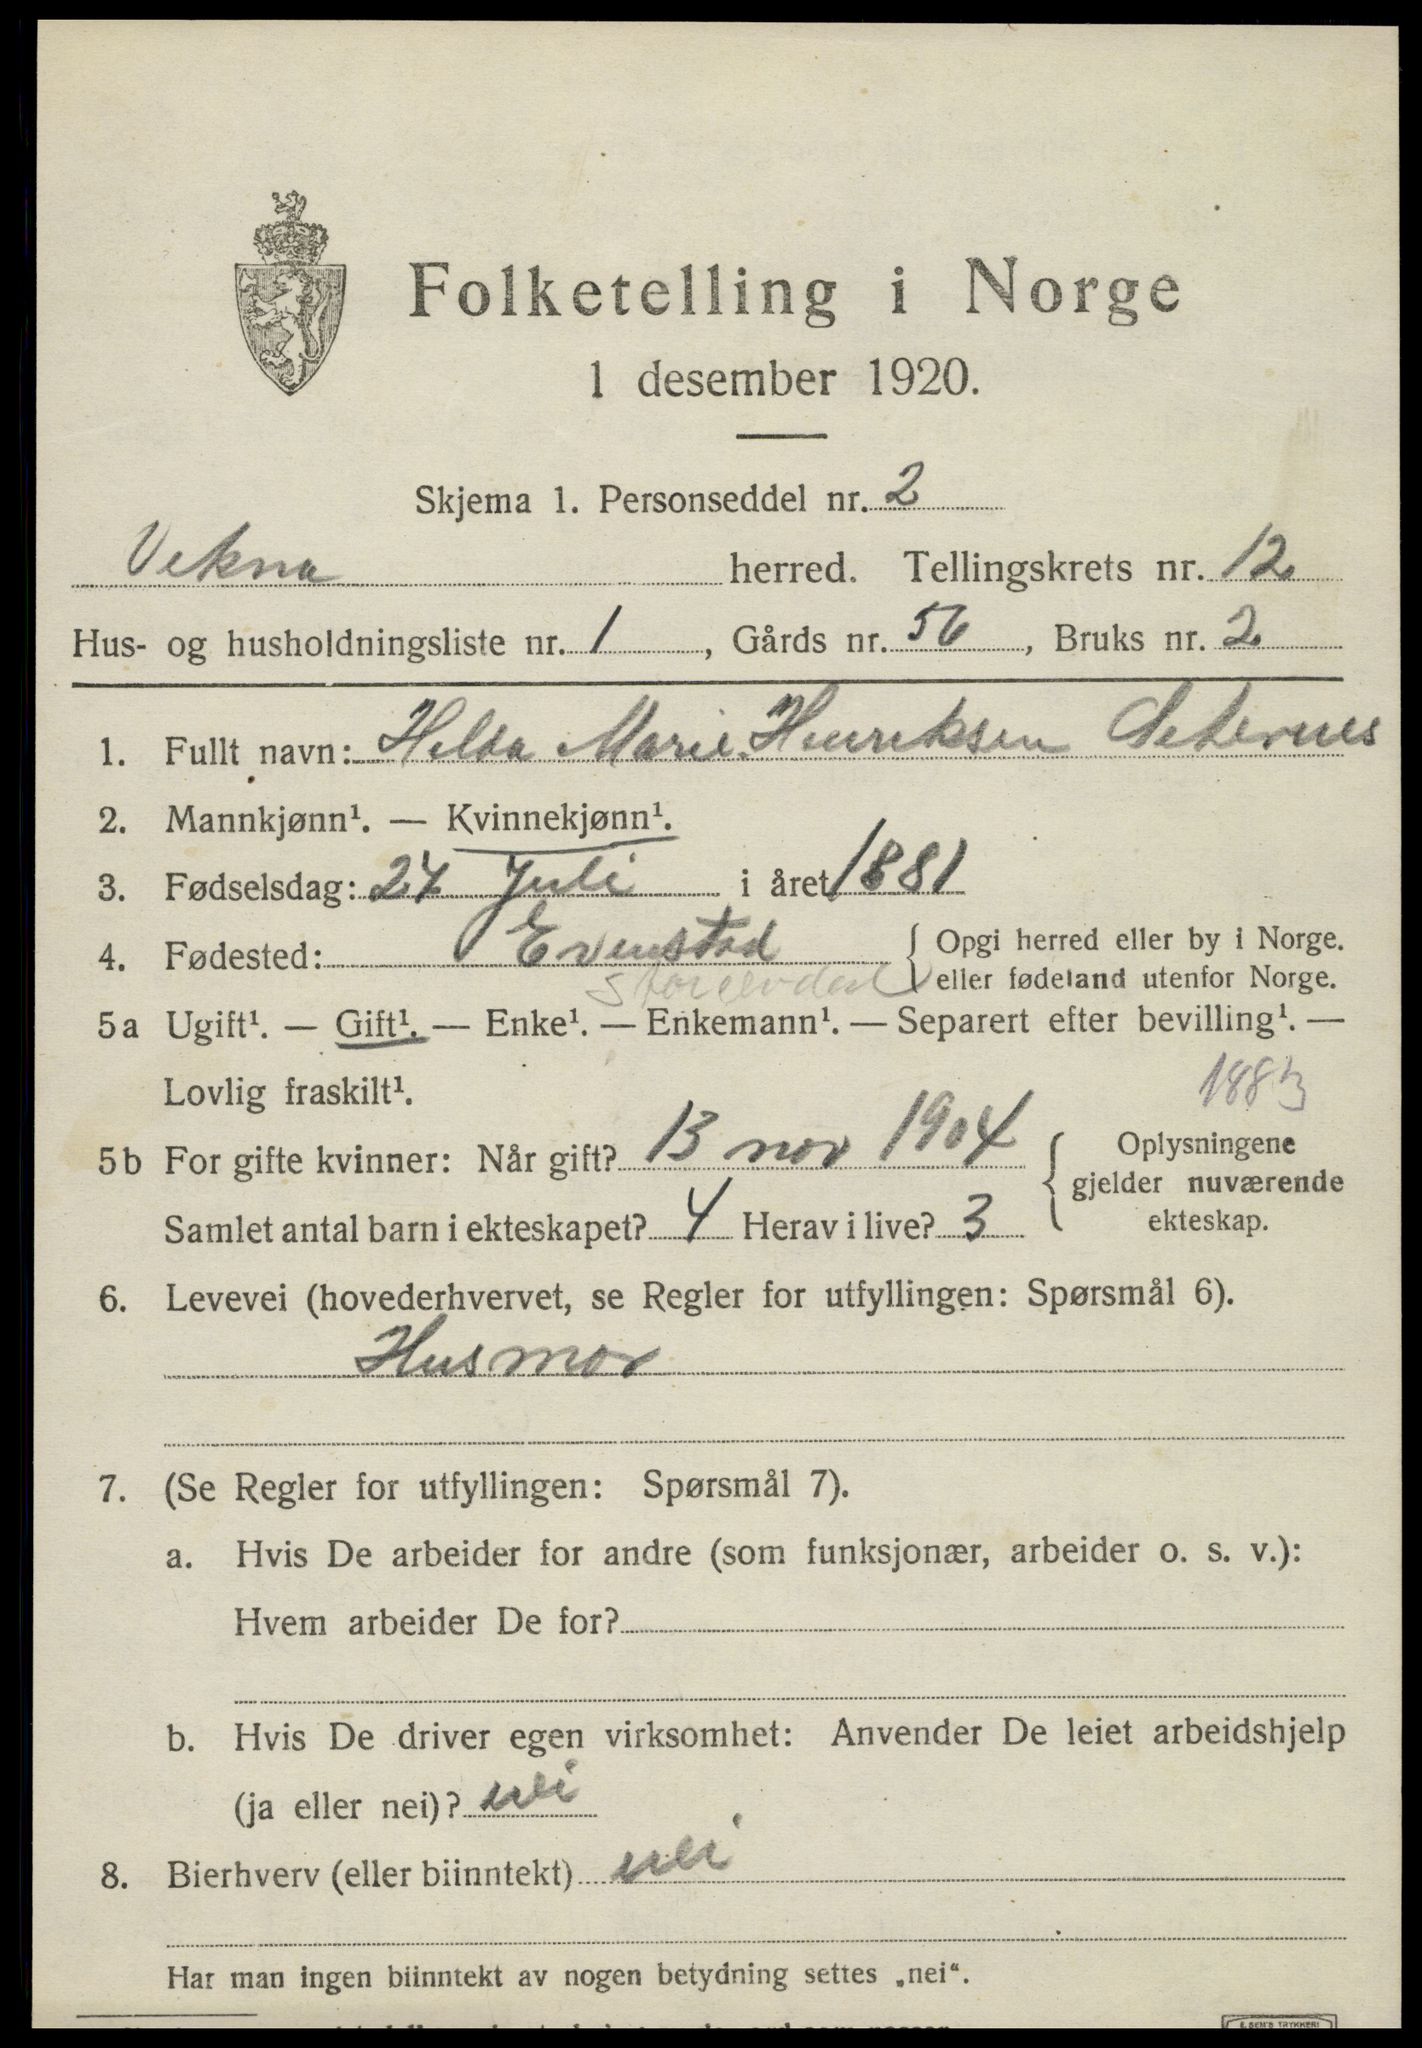 Folketelling i Norge
1 desember 1920.
Skjema 1. Personseddel nr. 2
Vekna herred. Tellingskrets nr. 12
Hus- og husholdningsliste nr. 1, Gårds nr. 56, Bruks nr. 2
1. Fullt navn: Helda Marie Henriksen Seternes
2. Mannkjønn¹. — Kvinnekjønn¹.
3. Fødselsdag: 24 Juli i året 1881
4. Fødested: Evenstad { Opgi herred eller by i Norge.
Storelvdal eller fødeland utenfor Norge.
5a Ugift¹. — Gift¹. — Enke¹. — Enkemann¹. — Separert efter bevilling¹. —
Lovlig fraskilt¹. 1883
5b For gifte kvinner: Når gift? 13 nov 1904 { Oplysningene
gjelder nuværende
Samlet antal barn i ekteskapet? 4 Herav i live? 3 ekteskap.
6. Levevei (hovederhvervet, se Regler for utfyllingen: Spørsmål 6).
Husmor
7. (Se Regler for utfyllingen: Spørsmål 7).
a. Hvis De arbeider for andre (som funksjonær, arbeider o. s. v.):
Hvem arbeider De for?
b. Hvis De driver egen virksomhet: Anvender De leiet arbeidshjelp
(ja eller nei)? nei
8. Bierhverv (eller biinntekt) nei
Har man ingen biinntekt av nogen betydning settes „nei“.